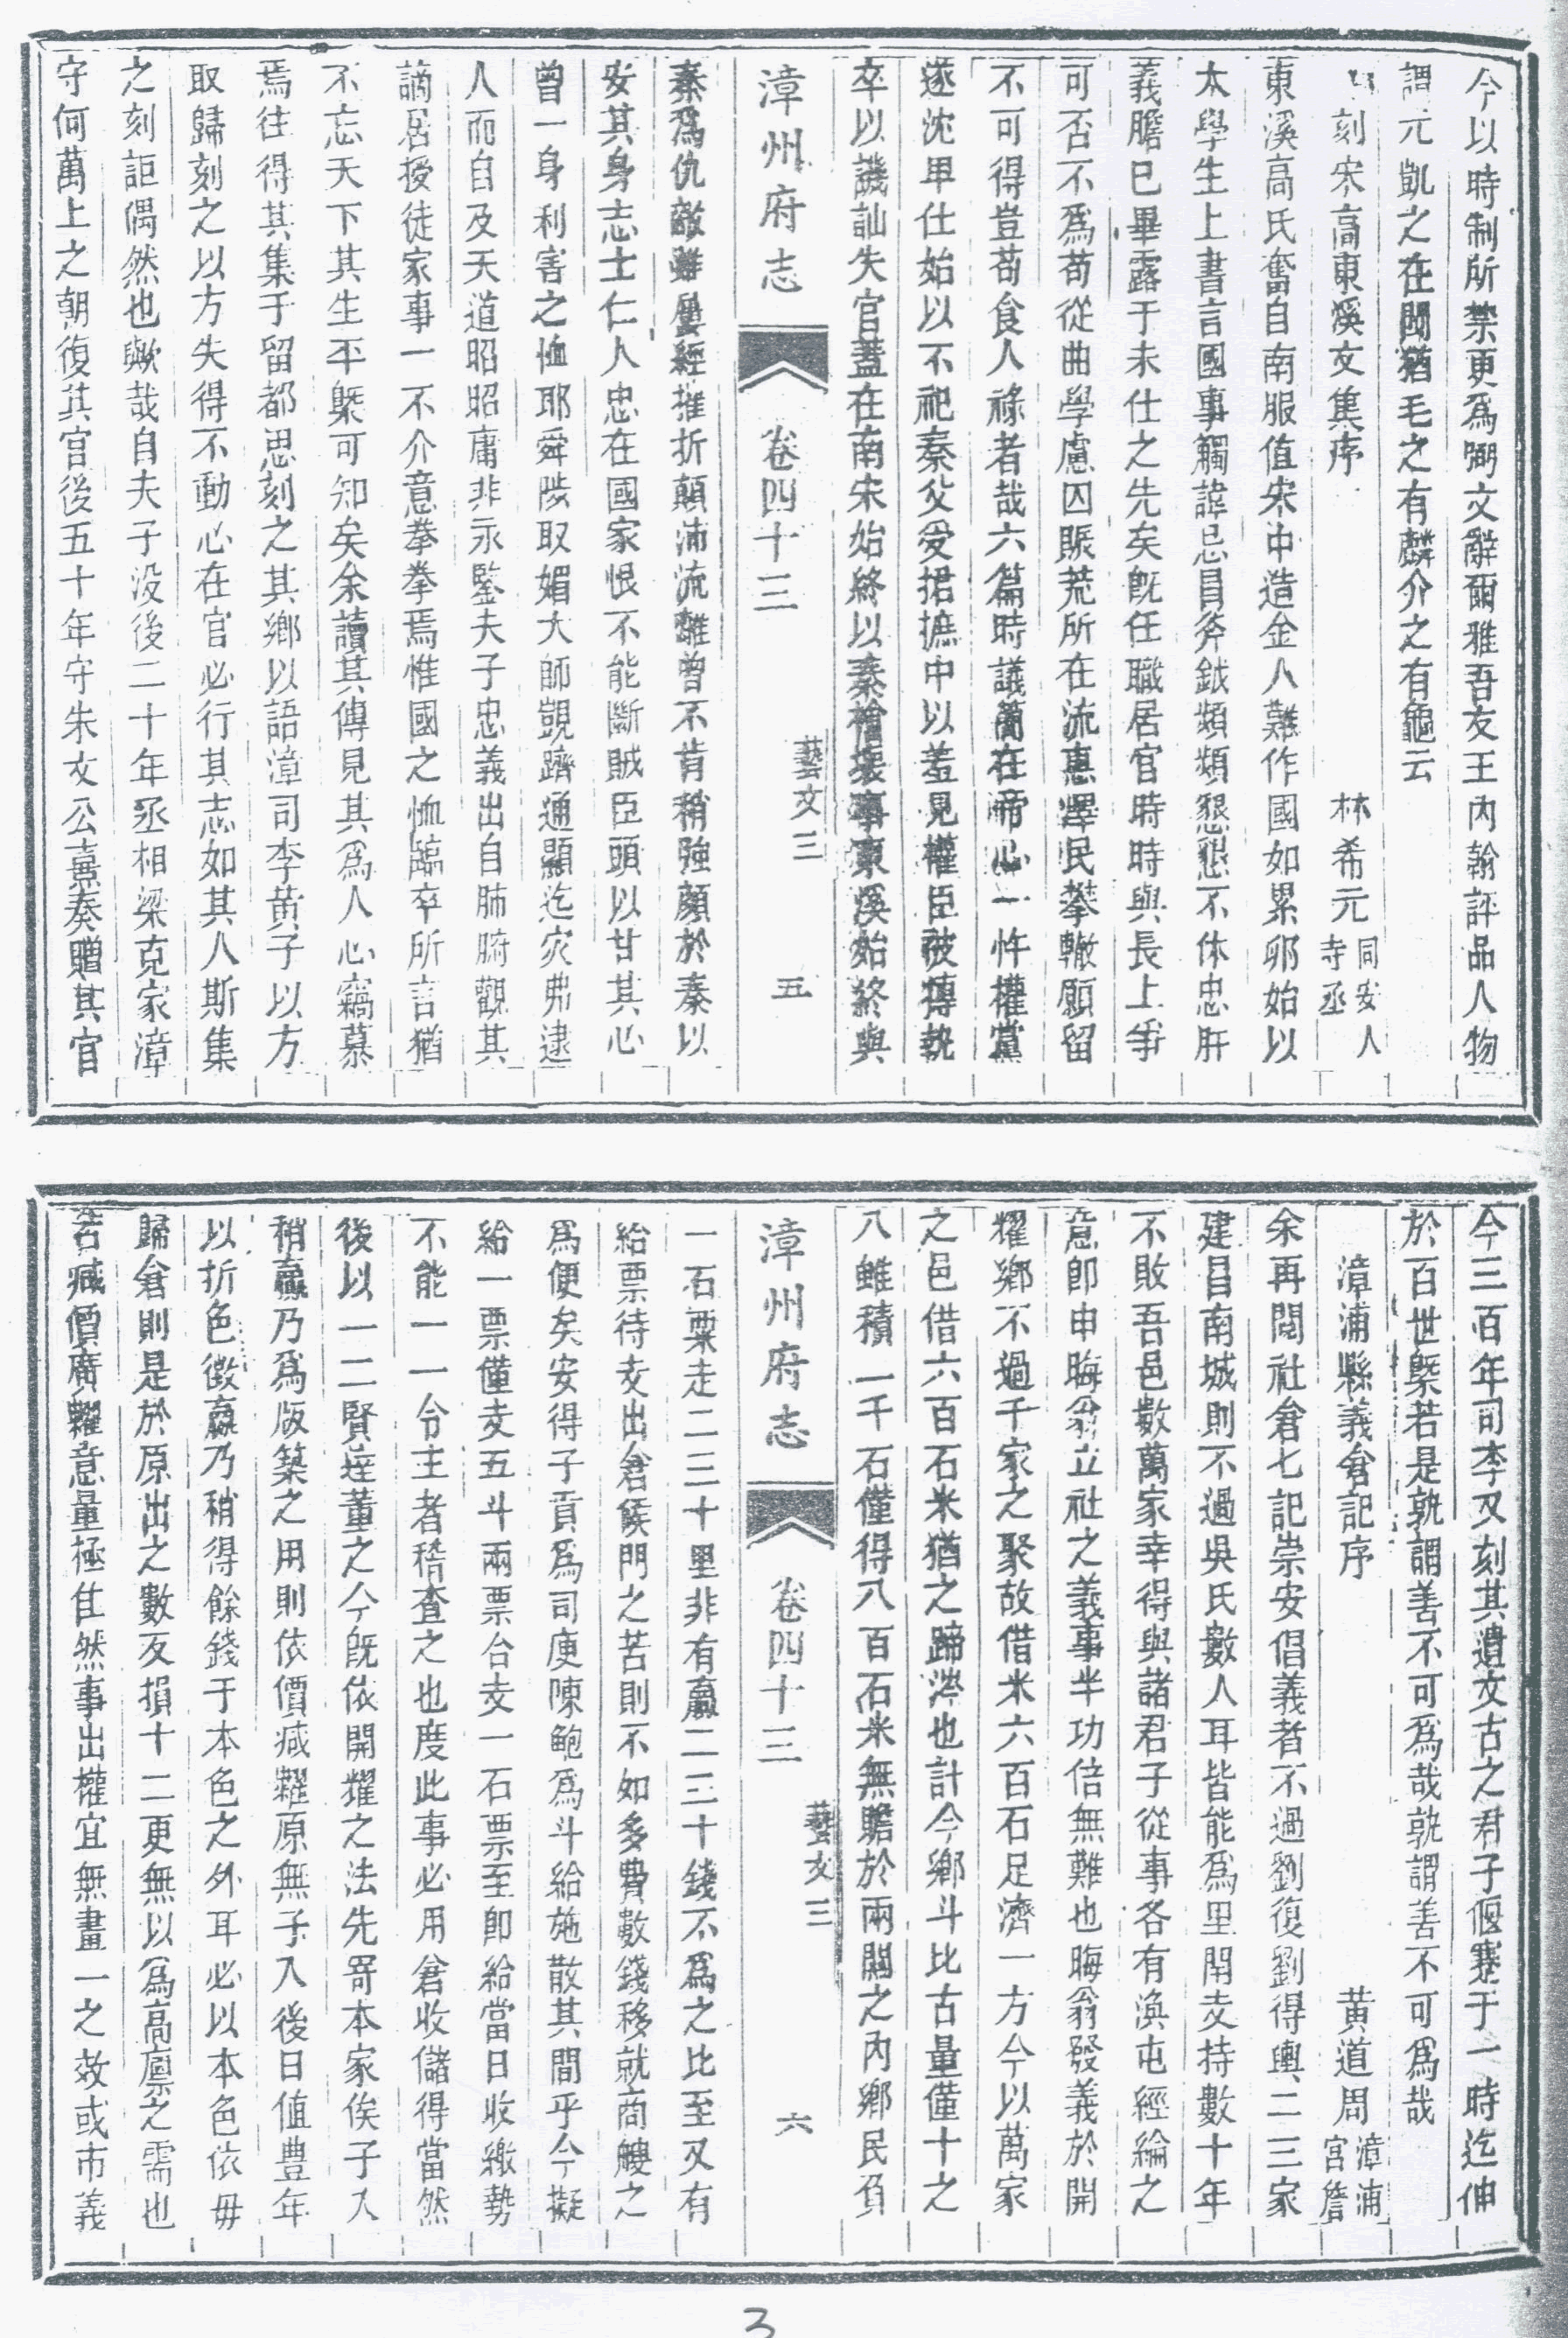 今以時制所禁更爲弼文辭爾雅吾友王內翰評品人物
謂元凱之在閩猶毛之有麟介之有龜云
刻宋高東溪文集序 林希元同安人寺丞
東溪高氏奮自南服值宋中造金人難作國如累卵始以
太學生上書言國事觸諱忌冒斧鉞頻頻懇懇不休忠肝
義膽已畢露于未仕之先矣旣任職居官時時與長上爭
可否不爲苟從曲學慮囚賑荒所在流惠澤民攀轍願留
不可得豈苟食人祿者哉六篇時議簡在帝心一忤權黨
遂沈卑仕始以不祀秦父受捃摭中以羞見權臣被摶執
卒以譏訕失官蓋在南宋始終以秦檜壞事東溪始終與
漳州府志 卷四十三 藝文三 五
秦爲仇敵雖屢經摧折顛沛流離曾不肯稍強顏於秦以
安其身志士仁人忠在國家恨不能斷賊臣頭以甘其心
曾一身利害之恤耶舜陟取媚大師覬躋通顯迄灾弗逮
人而自及天道昭昭庸非永鑒夫子忠義出自肺腑觀其
謫居授徒家事一不介意拳拳焉惟國之恤臨卒所言猶
不忘天下其生平槩可知矣余讀其傳見其爲人心竊慕
焉往得其集于留都思刻之其鄉以語漳司李黃子以方
取歸刻之以方失得不動心在官必行其志如其人斯集
之刻詎偶然也歟哉自夫子没後二十年丞相梁克家漳
守何萬上之朝復其官後五十年守朱文公熹奏贈其官
今三百年司李又刻其遺文古之君子偃蹇于一時迄伸
於百世槩若是孰謂善不可爲哉孰謂善不可爲哉
漳浦縣義倉記序 黃道周漳浦宮詹
余再閱社倉七記崇安倡義者不過劉復劉得輿二三家
建昌南城則不過吳氏數人耳皆能爲里閈支持數十年
不敗吾邑數萬家幸得與諸君子從事各有渙屯經綸之
意卽申晦翁立社之義事半功倍無難也晦翁發義於開
耀鄉不過千家之聚故借米六百石足濟一方今以萬家
之邑借六百石米猶之蹄涔也計今鄉斗比古量僅十之
八雖積一千石僅得八百石米無贍於兩關之內鄉民負
漳州府志 卷四十三 藝文三 六
一石粟走二三十里非有羸二三十錢不爲之比至又有
給票待支出倉候門之苦則不如多費數錢移就商艘之
爲便矣安得子貢爲司庾陳鮑爲斗給施散其間乎今擬
給一票僅支五斗兩票合支一石票至卽給當日收繳勢
不能一一令主者稽查之也度此事必用倉收儲得當然
後以一二賢達董之今旣依開耀之法先寄本家俟子入
稍羸乃爲版築之用則依價減糶原無子入後日值豊年
以折色徵羸乃稍得餘錢于本色之外耳必以本色依毋
歸倉則是於原出之數反損十二更無以爲高廩之需也
若減價廣糶意量極佳然事出權宜無畫一之效或市義
3